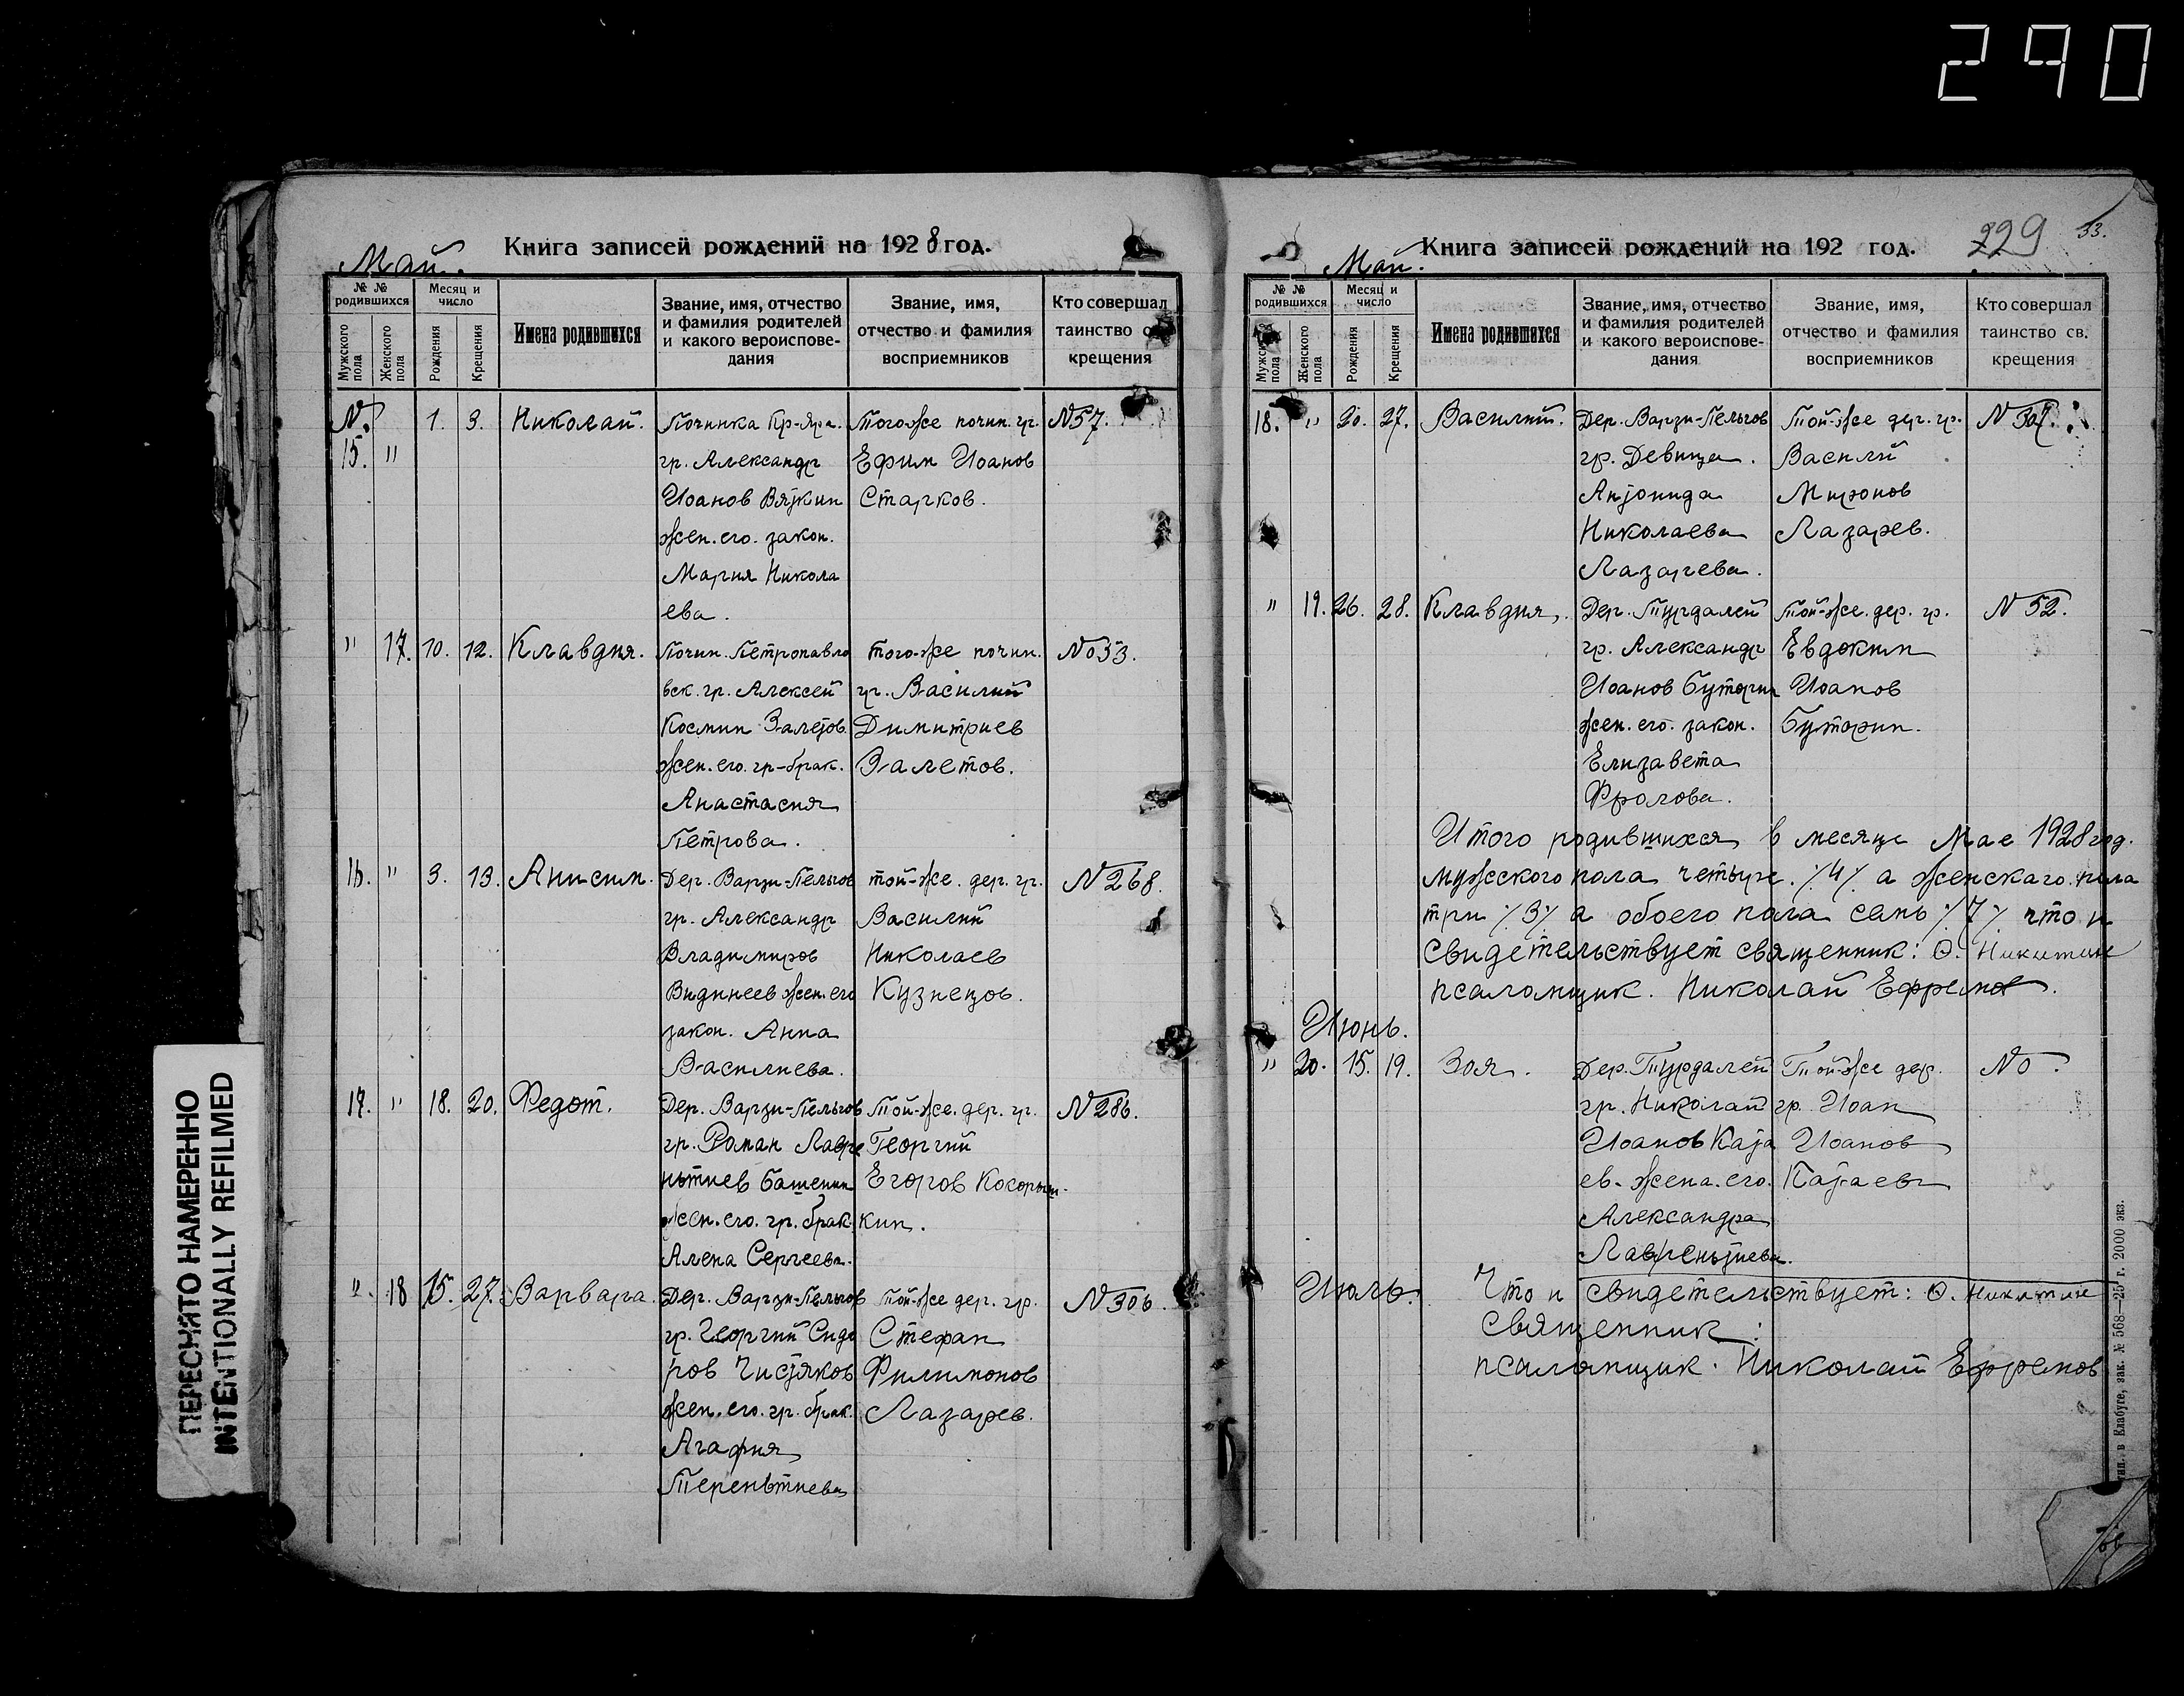 290
Май.
Книга записей рождений на 1928 год.
№ № родившихся
Мужского пола
Женского пола
Месяц и число
Рождения
Крещения
Имена родившихся
Звание, имя, отчество и фамилия родителей и какого вероисповедания
Звание, имя, отчество и фамилия восприемников
Кто совершал таинство св. крещения
№. 1. 3. Николай. Починка Кр-Яра. Того-же почин. гр. №57.
15. " гр. Александр Ефим Иоанов
Иоанов Вяткин Старков.
жен. его. закон.
Мария Никола
ева.
" 17. 10. 12. Клавдия. Почин. Петропавло того-же почин. №33.
вск. гр. Алексей гр. Василий
Космин Залетов. Димитриев
жен. его. гр-брак. Залетов.
Анастасия
Петрова.
16. " 3. 13. Анисим. Дер. Варзи-Пельгов той-же. дер. гр. №268.
гр. Александр Василий
Владимиров Николаев
жен. его Кузнецов.
закон. Анна
Василиева.
17. " 18. 20. Федот. Дер. Варзи-Пельгов Той-же. дер. гр. №286.
гр. Роман Лавре Георгий
нтиев Башенин Егоров
жен. его. гр. брак. кин.
Алена Сергеева.
" 18 15. 27. Варвара. Дер. Варзи-Пельгов той-же дер. гр. №306.
гр. Георгий Сидо Стефан
ров Чистяков Филимонов
жен. его. гр. брак. Лазарев.
Агафия
Терентиева
ПЕРЕСНЯТО НАМЕРЕННО
INTENTIONALLY REFILMED
Май.
Книга записей рождений на 192 год.
229 33.
№ № родившихся
Мужского пола
Женского пола
Месяц и число
Рождения
Крещения
Имена родившихся
Звание, имя, отчество и фамилия родителей и какого вероисповедания
Звание, имя, отчество и фамилия восприемников
Кто совершал таинство св. крещения
18. " 20. 27. Василий. Дер. Варзи-Пельгов Той-же дер. гр. №307.
гр. Девица. Василий
Антонида Миронов
Николаева Лазарев.
Лазарева.
" 19. 26. 28. Клавдия. Дер. Турдалей Той-же. дер. гр. №52.
гр. Александр Евдоким
Иоанов Буторин Иоанов
жен. его. закон. Буторин.
Елизавета
Фролова.
Итого родившихся в месяце Мае 1928 год.
мужского пола четыре. /4/. а женскаго пола
три /3/ а обоего пола семь /7/ что и
свидетельствует священник: Ѳ. Никитин
псаломщик. Николай Ефремов.
Июнь.
" 20. 15. 19. Зоя. Дер. Турдалей Той-же дер. №.
гр. Николай гр. Иоан
Иоанов Ката Иоанов
ев. жена. его. Катаев
Александра
Лаврентиева.
Июль. Что и свидетельствует: Ѳ. Никитин
Священник:
псаломщик. Николай Ефремов
тип. в Елабуге, зак. № 568—25 г. 2000 экз.